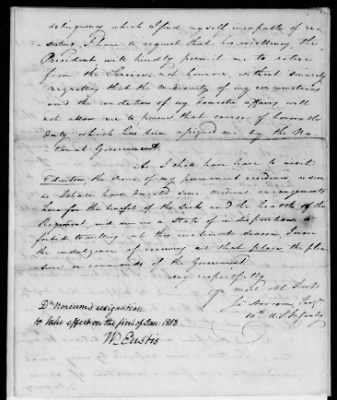 delinquency which I find myself incapable of re-
sisting. I have to request that his excellency, the
President will kindly permit me to retire
from the Service, not however, without sincerely
regretting that the mediocrity of my circumstances
and the condition of my domestic affairs will
not allow me to pursue that course of honorable
duty which has been assigned me by the Na-
tional Government.
As I shall have leave to visit
Edenton the place of my permanent residence, as soon
as I shall have directed some medical arrangements
here for the benefit of the Sick and the health of the
Regiment, and am in a State of indisposition
to travelling at this inclement season, I crave
the indulgence of receiving at that place the plea-
sure or commands of the Government
very respectfully
yr most Obt Servt
Jas Norcom, Surgn
10th U.S. Infantry
Dr. Norcum's resignation
to take effect on the first of Jan. 1813.
W. Eustis